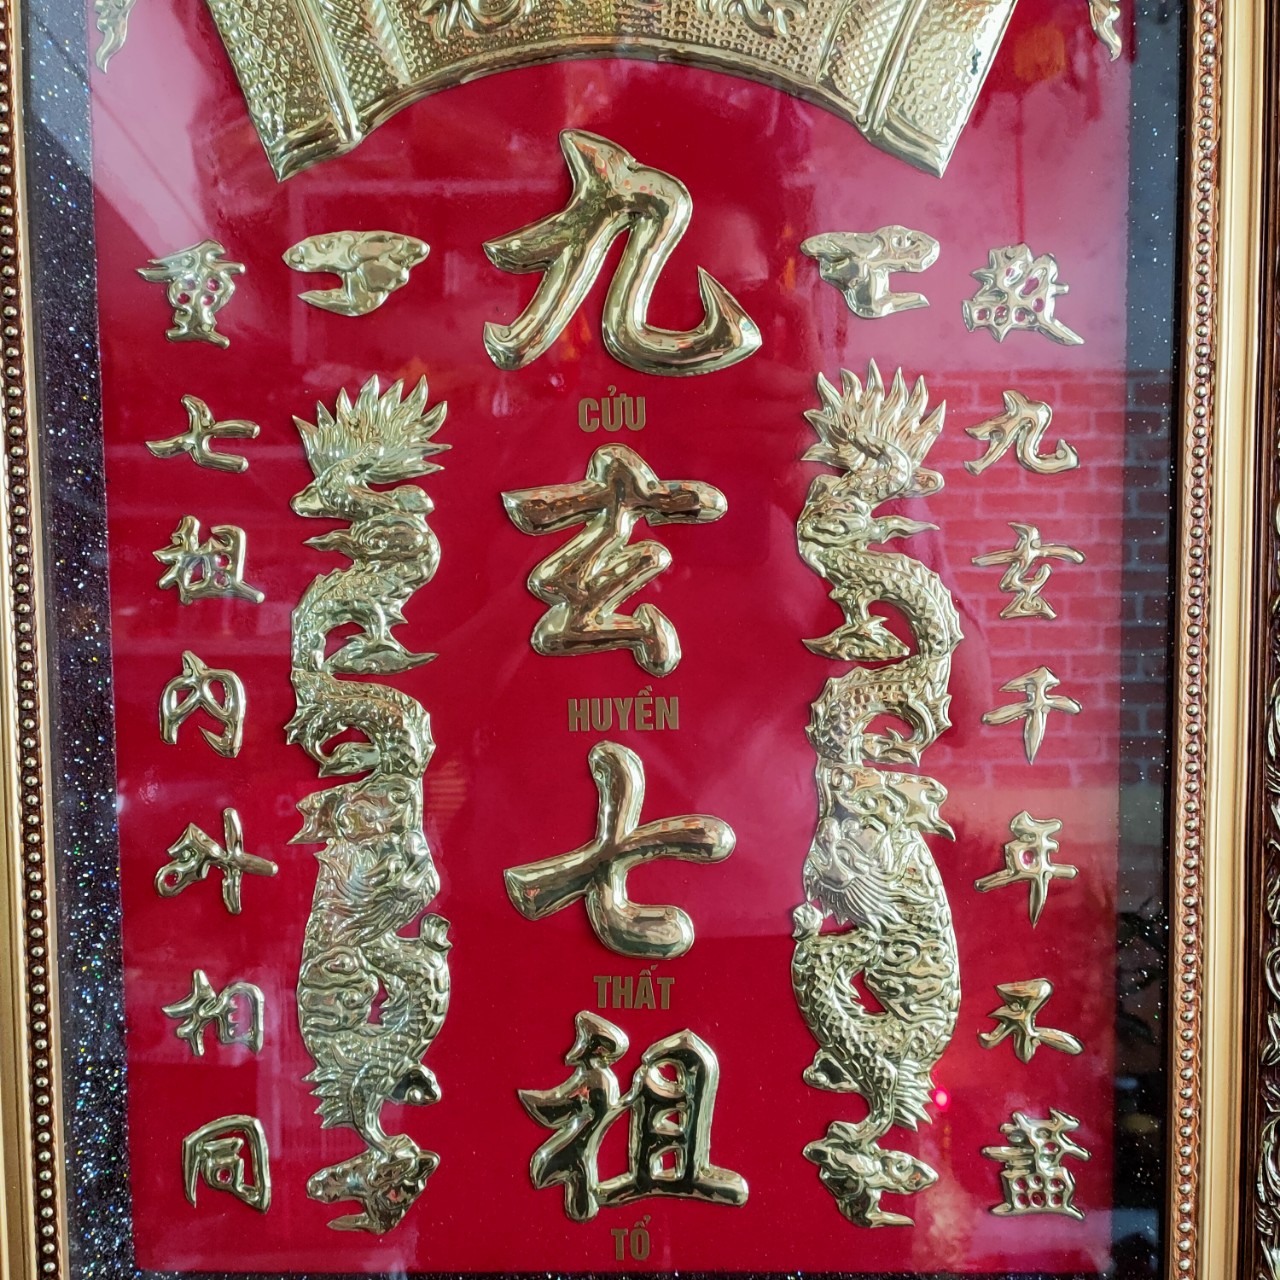 敬九玄千年不盡
九
CỬU
玄
HUYỀN
七
THẤT
祖
TỔ
重七祖内外尚同